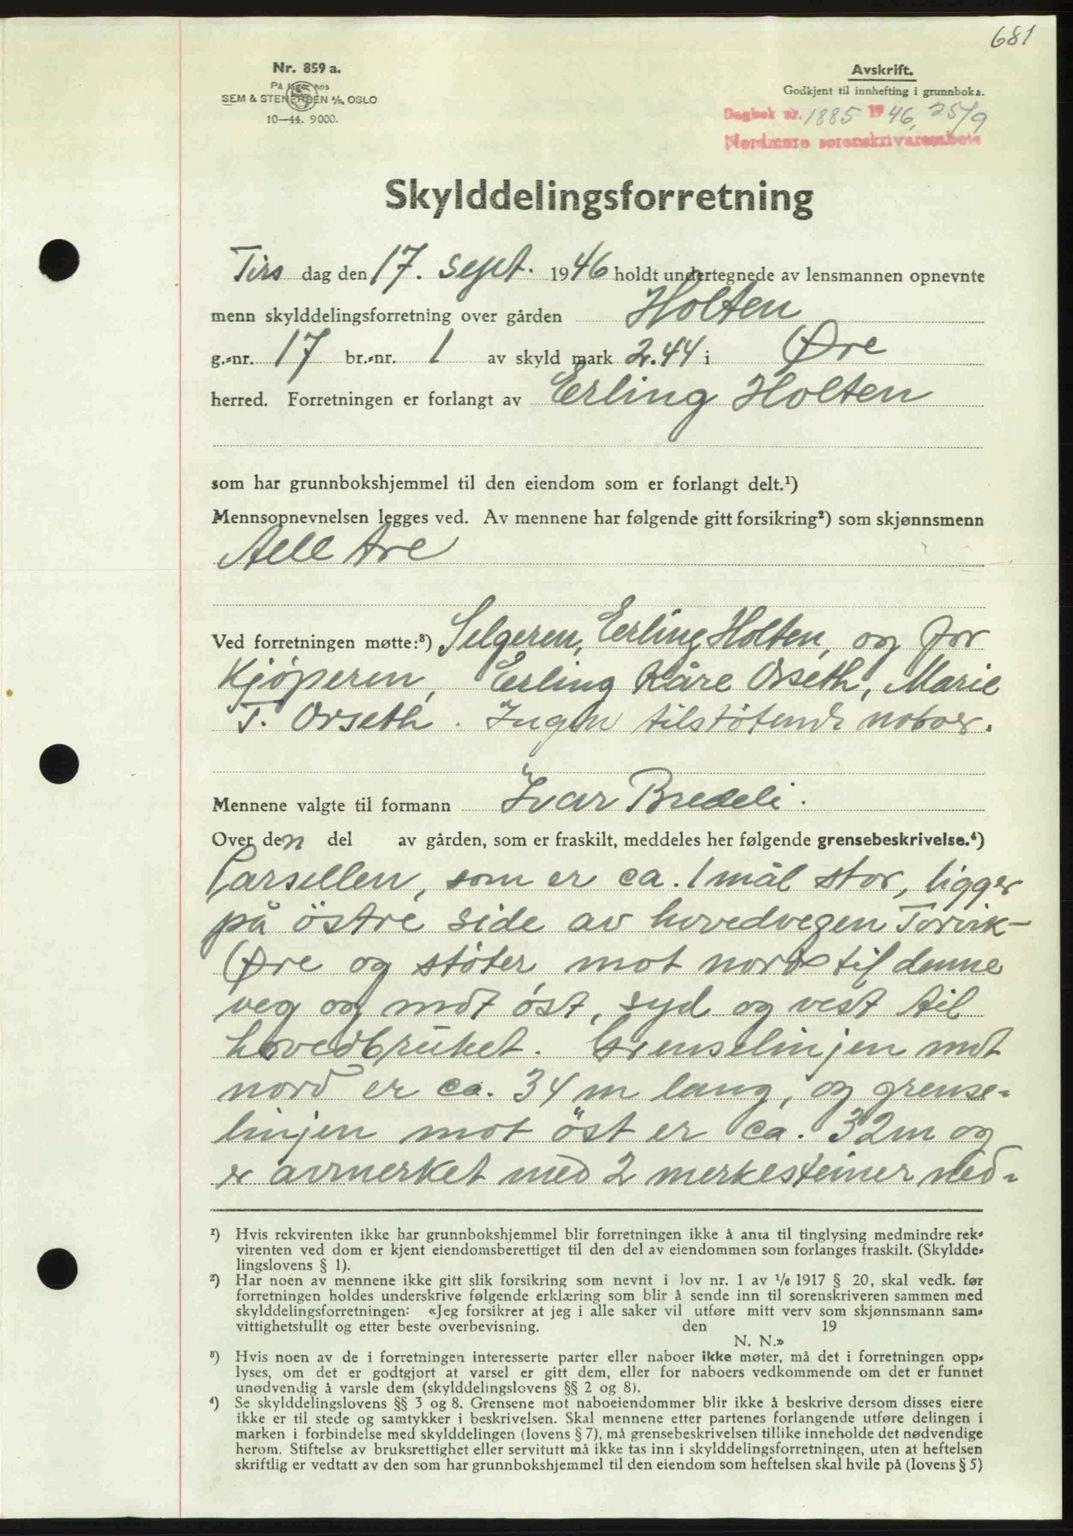 681
Nr. 859 a.
På lager hos
SEM & STENERSEN A/S, OSLO
10—44. 9000.
Avskrift.
Godkjent til innhefting i grunnboka.
Dagbok nr. 1885 1946, 25/9
Nordmøre sorenskrivarembete
Skylddelingsforretning
Tirs dag den 17. sept. 1946 holdt undertegnede av lensmannen opnevnte
menn skylddelingsforretning over gården Holten
g.-nr. 17 br.-nr. 1 av skyld mark 2.44 i Øre
herred. Forretningen er forlangt av Erling Holten
som har grunnbokshjemmel til den eiendom som er forlangt delt.¹)
Mennsopnevnelsen legges ved. Av mennene har følgende gitt forsikring²) som skjønnsmenn
Alle tre
Ved forretningen møtte:³) Selgeren, Erling Holten, og for
Kjöperen, Erling Kåre Orseth, Marie
T. Orseth. Ingen tilstøtende naboer.
Mennene valgte til formann Ivar Bredeli.
Over den del av gården, som er fraskilt, meddeles her følgende grensebeskrivelse.⁴)
Parsellen, som er ca. 1 mål stor, ligger
på östre side av hovedvegen Torvik-
Øre og støter mot nord til denne
veg og mot øst, syd og vest til
hovedbruket. Grenselinjen mot
nord er ca. 34 m lang, og grense-
linjen mot öst er ca. 32m og
er avmerket med 2 merkesteiner ned-
¹) Hvis rekvirenten ikke har grunnbokshjemmel blir forretningen ikke å anta til tinglysing medmindre rek-
virenten ved dom er kjent eiendomsberettiget til den del av eiendommen som forlanges fraskilt. (Skyldde-
lingslovens § 1).
²) Har noen av mennene ikke gitt slik forsikring som nevnt i lov nr. 1 av 1/6 1917 § 20, skal vedk. før
forretningen holdes underskrive følgende erklæring som blir å sende inn til sorenskriveren sammen med
skylddelingsforretningen: «Jeg forsikrer at jeg i alle saker vil utføre mitt verv som skjønnsmann sam-
vittighetsfullt og etter beste overbevisning. den 19
N. N.»
³) Hvis noen av de i forretningen interesserte parter eller naboer ikke møter, må det i forretningen opp-
lyses, om det er godtgjort at varsel er gitt dem, eller for naboers vedkommende om det er funnet
unødvendig å varsle dem (skylddelingslovens §§ 2 og 8).
⁴) Se skylddelingslovens §§ 3 og 8. Grensene mot naboeiendommer blir ikke å beskrive dersom disses eiere
ikke er til stede og samtykker i beskrivelsen. Skal mennene etter partenes forlangende utføre delingen i
marken i forbindelse med skylddelingen (lovens § 7), må grensebeskrivelsen tillike inneholde det nødvendige
herom. Stiftelse av bruksrettighet eller servitutt må ikke tas inn i skylddelingsforretningen, uten at heftelsen
skriftlig er vedtatt av den som har grunnbokshjemmel til den eiendom som heftelsen skal hvile på (lovens § 5)